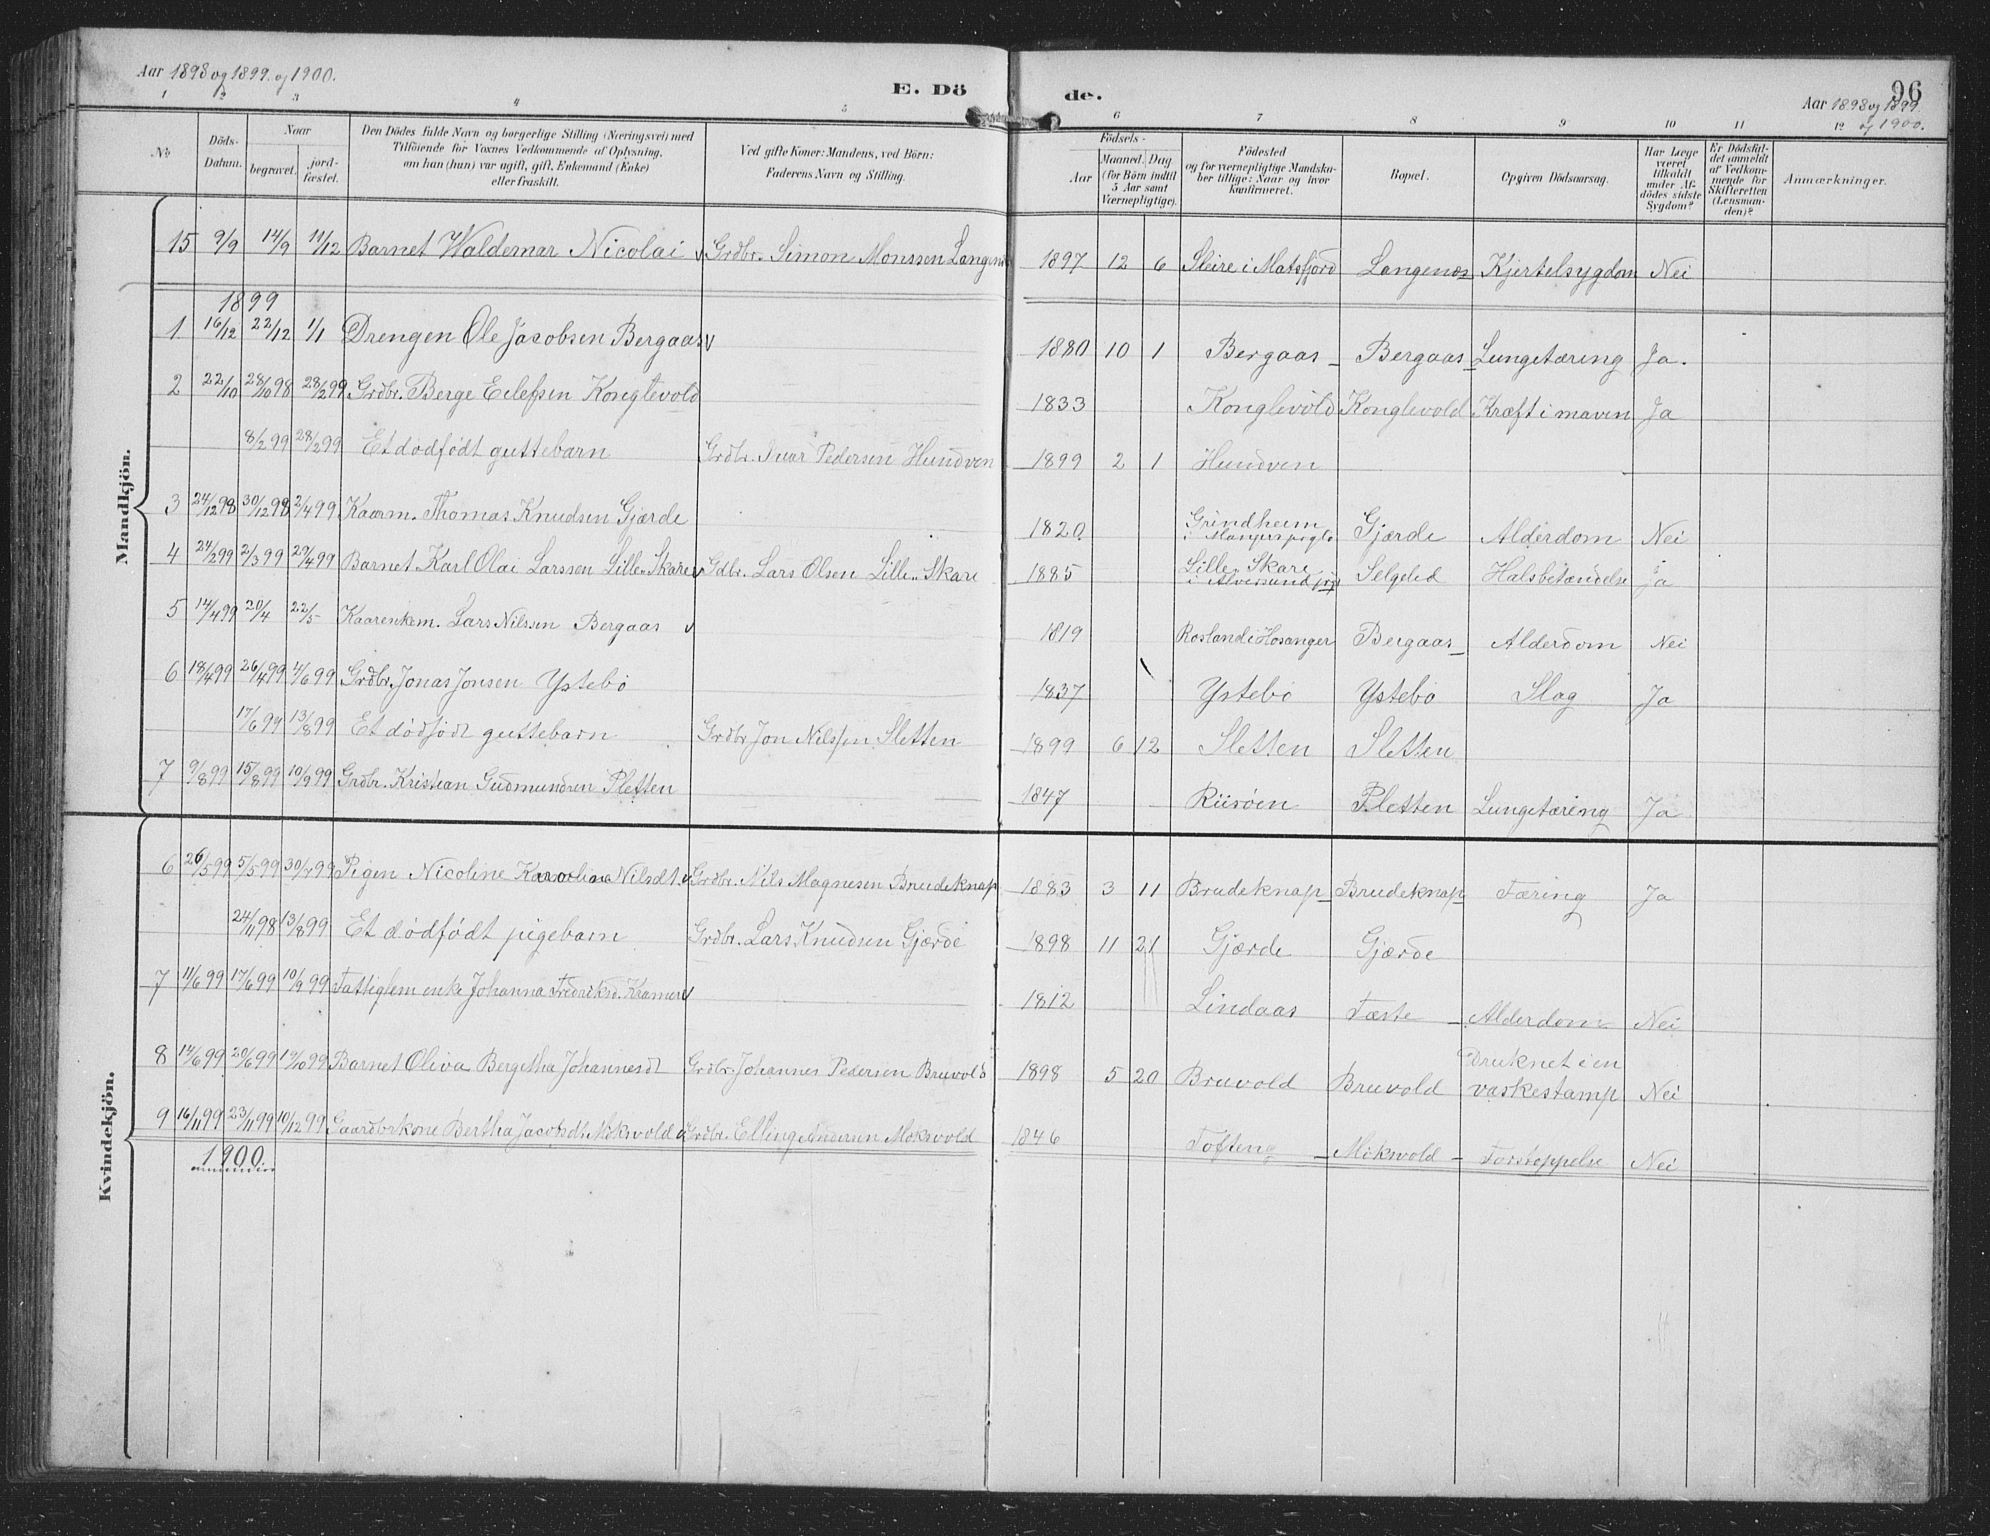 Aar 1898 og 1899. og 1900.
E. Dö
de.
96
Aar 1898 og 1899.
og 1900.
1 2 3 4 5 6 7 8 9 10 11 12
№
Döds-Datum.
Naar
begravet.
jord-fæstet.
Den Dödes fulde Navn og borgerlige Stilling (Næringsvei) med
Tilföiende for Voxnes Vedkommende af Oplysning,
om han (hun) var ugift, gift, Enkemand (Enke)
eller fraskilt.
Ved gifte Koner: Mandens, ved Börn:
Faderens Navn og Stilling.
Födsels-
Aar
Maaned.
Dag.
(for Börn indtil
5 Aar samt
Værnepligtige).
Födested
og for værnepligtige Mandska-
ber tillige: Naar og hvor
konfirmeret.
Bopæl.
Opgiven Dödsaarsag.
Har Læge
været
tilkaldt
under Af-
dödes sidste
Sygdom?
Er Dödsfal-
det anmeldt
af Vedkom-
mende for
Skifteretten
(Lensman-
den)?
Anmærkninger.
Mandkjön.
15 9/9 14/9 11/12 Barnet Waldemar Nicolai Grdbr. Simon Monssen Langenæs 1897 12 6 Sleire i Matsfjord Langenæs Kjertelsygdom Nei
1899
1 16/12 22/12 1/1 Drengen Ole Jacobsen Bergaas 1880 10 1 Bergaas Bergaas Lungetæring Ja.
2 22/10 28/10 98 28/2 99 Grdbr. Berge Eilefsen Konglevold 1833 Konglevold Konglevold Kræft i maven Ja
8/2 99 28/2 99 Et dödfödt guttebarn Grdbr. Ivar Pedersen Hundven 1899 2 1 Hundven
3 24/12 98 30/12 98 2/4 99 Kaarm. Thomas Knudsen Gjærde 1820 Grindheim
i Mangers Gjærde Alderdom Nei
4 24/2 99 2/3 99 29/4 99 Barnet Karl Olai Larssen Lille-Skare Gdbr. Lars Olsen Lille-Skare 1885 Lille-Skare
i Alversund Selgeled Halsbetændelse Ja
5 14/4 99 20/4 22/5 Kaarenkem. Lars Nilssen Bergaas 1819 Rosland i Hosanger Bergaas Alderdom Nei
6 18/4 99 26/4 99 4/6 99 Grdbr. Jonas Jonsen Ystebö 1837 Ystebö Ystebö Slag Ja
17/6 99 13/8 99 Et dödfödt guttebarn Grdbr. Jon Nilssen Sletten 1899 6 12 Sletten Sletten
7 9/8 99 15/8 99 10/9 99 Grdbr. Kristian Gudmundsen Pletten 1847 Riisöen Pletten Lungetæring Ja
Kvindekjön.
6 26/5 99 5/5 99 30/7 99 Pigen Nicoline Karoline Nilsdt. Grdbr. Nils Magnesen Brudeknap 1883 3 11 Brudeknap Brudeknap Tæring Ja
24/11 98 13/8 99 Et dödfödt pigebarn Grdbr. Lars Knudsen Gjærde 1898 11 21 Gjærde Gjærde
7 11/6 99 17/6 99 10/9 99 Fattiglem enke Johanna Fredriksd. Kramer 1812 Lindaas Tæste Alderdom Nei
8 14/6 99 20/6 99 19/10 99 Barnet Oliva Bergitha Johannesdt Grdbr. Johannes Pedersen Bruvold 1898 5 20 Bruvold Bruvold Druknet i en
vaskestamp Nei
9 16/11 99 23/11 99 10/12 99 Gaardbrkone Bertha Jacobsdt. Mökvold Grdbr. Elling Andersen Mökvold 1846 Tofteng Mökvold Forstoppelse Nei
1900